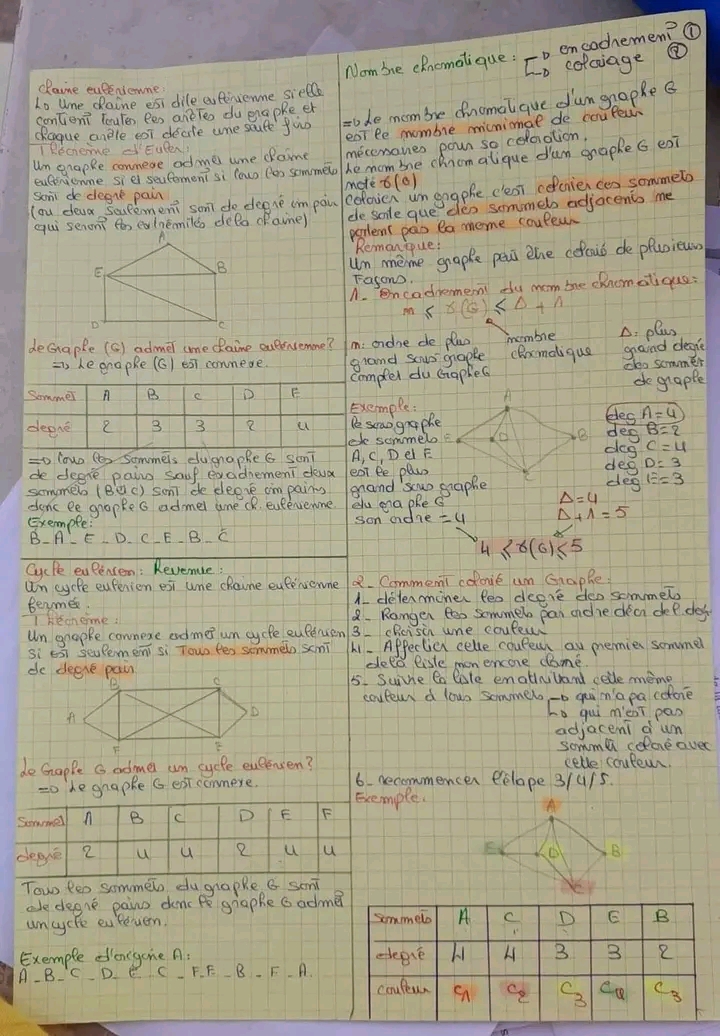 chaine eulérienne:
Une chaîne est dite eulérienne si elle
contient toutes les arêtes du graphe et
chaque arête est décrite une seule fois
Théorème d'Euler:
Un graphe connexe admet une chaîne
eulérienne si et seulement si tous les sommets
sont de degré pair
(ou deux seulement sont de degré impair
qui seront les extrémités de la chaine)
A
E
B
D
C
Le Graphe (G) admet une chaîne eulérienne?
=> Le graphe (G) est connexe.
Sommet A B C D E
degré 2 3 3 2 4
=> tous les sommets du graphe G sont
de degré pairs sauf exactement deux
sommets (B et C) sont de degré impairs
donc le graphe G admet une ch. eulérienne.
Exemple:
B - A - E - D - C - E - B - C
Cycle eulérien: Revenue:
Un cycle eulérien est une chaine eulérienne
fermée.
Théorème:
Un graphe connexe admet un cycle eulérien
si est seulement si Tous les sommets sont
de degré pair
B
C
A
D
F
E
Le Graphe G admet un cycle eulérien?
=> Le graphe G est connexe.
Sommet A B C D E F
degré 2 4 4 2 4 4
Tous les sommets du graphe G sont
de degré pairs donc le graphe G admet
un cycle eulérien.
Exemple d'origine A:
A - B - C - D - E - C - F - E - B - F - A.
Nombre chromatique: encadrement ①
coloriage ②
=> Le nombre chromatique d'un graphe G
est le nombre minimal de couleur
nécessaires pour sa coloration.
Le nombre chromatique d'un graphe G est
noté γ(G)
Colorier un graphe c'est colorier ces sommets
de sorte que des sommets adjacents ne
portent pas la meme couleur
Remarque:
Un même graphe peut être colorié de plusieurs
Façons.
1- Encadrement du nombre chromatique:
n ⩽ γ(G) ⩽ Δ + 1
n: ordre de plus
grand sous graphe
complet du Graphe G
nombre
chromatique
Δ: plus
grand degré
des sommets
de graphe
Exemple:
le sous graphe
de sommets
A, C, D et E
est le plus
grand sous graphe
du graphe G
son ordre = 4
A
E
D
B
C
deg A = 4
deg B = 2
deg C = 4
deg D = 3
deg E = 3
Δ = 4
Δ + 1 = 5
4 ⩽ γ(G) ⩽ 5
2- Comment colorié un Graphe:
1- déterminer les degré des sommets
2- Ranger les sommets par ordre décr de l. deg.
3- choisir une couleur
4- Affecter cette couleur au premier sommet
de la liste non encore
5- Suivre la liste en attribuant cette même
couleur à tous sommets qui n'a pa coloré
qui n'est pas
adjacent à un
sommet coloré avec
cette couleur.
6- recommencer l'étape 3/4/5.
Exemple.
A
E
D
B
C
Sommets A C D E B
degré 4 4 3 3 2
couleur C1 C2 C3 C4 C3